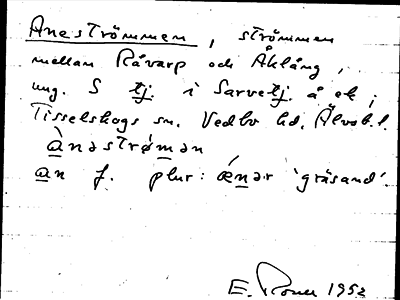 Aneströmmen, strömmen
mellan Råvarp och Åklång,
ung. S tj. i Sarvetj. å ek;
Tisselskogs sn. Vedbo hd. Älvsb.l.
ànəstrømən
an f. plur: ǽnər 'gräsand'.
E. 1952